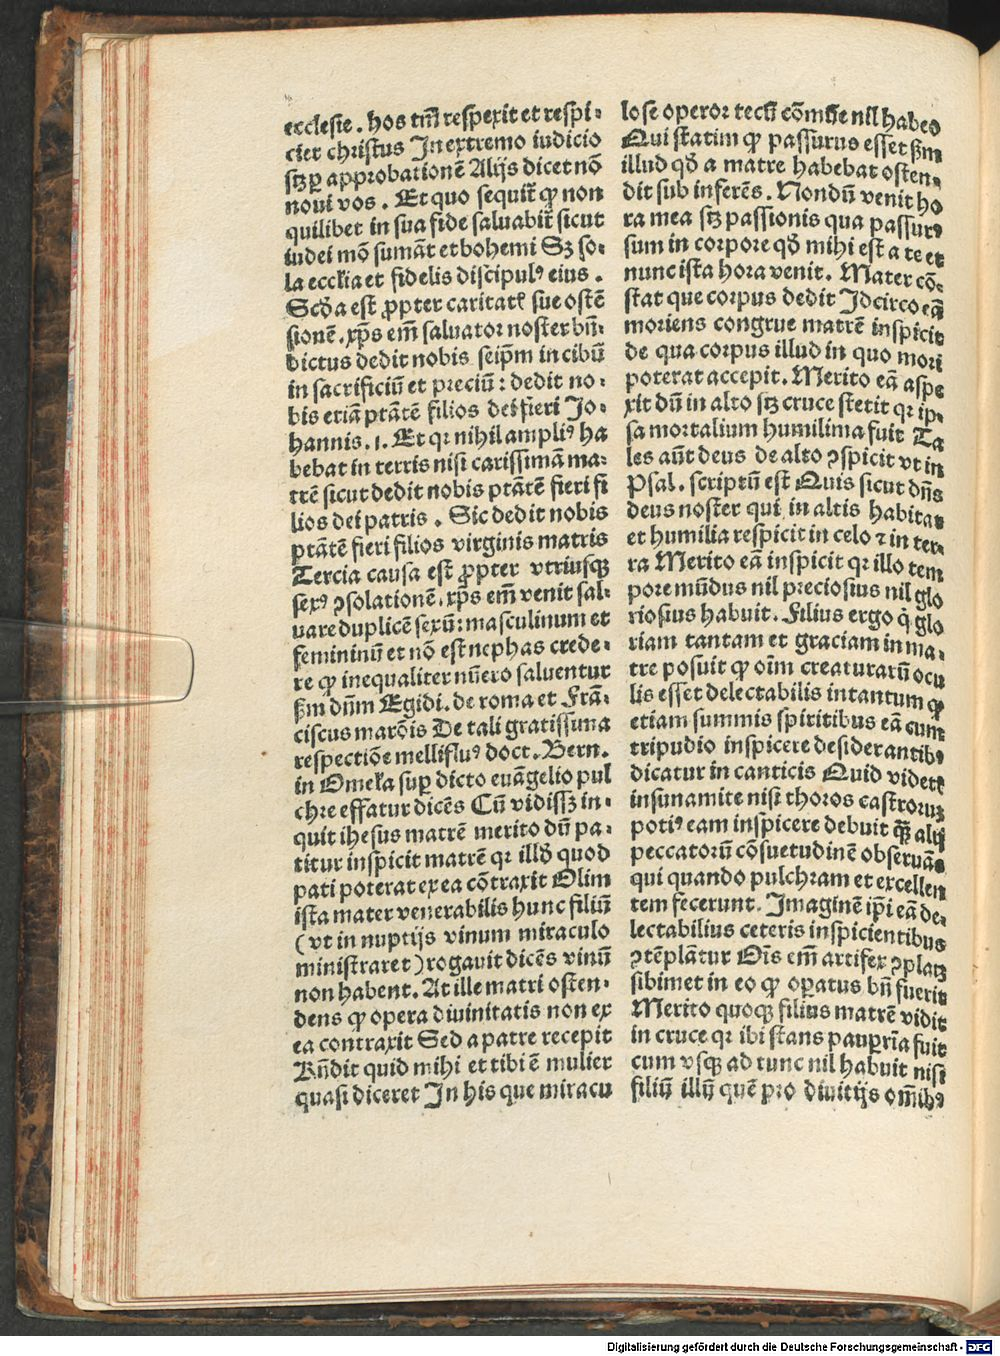 ecclesie. hos tm̄ respexit et respi⸗
ciet christus In extremo iudicio
sꝫ ꝑ approbationē Alijs dicet nō
noui vos. Et quo sequit᷑ ꝙ non
quilibet in sua fide saluabit᷑ sicut
iudei mō sumāt et bohemi Sꝫ so⸗
la ecclīa et fidelis discipulꝰ eius.
Scd̄a est ꝓpter caritatē sue ostē
sionē. xp̄s em̄ saluator noster bn̄⸗
dictus dedit nobis seip̄m in cibū
in sacrificiū et preciū: dedit no⸗
bis etiā ptātē filios dei fieri Jo⸗
hannis. 1. Et qr nihil ampliꝰ ha
bebat in terris nisi carissimā ma⸗
trē sicut dedit nobis ptātē fieri fi
lios dei patris. Sic dedit nobis
ptātē fieri filios virginis matris
Tercia causa est ꝓpter vtriusqꝫ
sexꝰ ꝯsolationē. xp̄s em̄ venit sal⸗
uare duplicē sexū: masculinum et
femininū et nō est nephas crede⸗
re ꝙ inequaliter nūero saluentur
ẞm dūm Egidi. de roma et Frā⸗
ciscus marōis De tali gratissima
respectiōe mellifluꝰ doct. Bern.
in Omel̄a suꝑ dicto euāgelio pul
chre effatur dicēs Cū vidissꝫ in⸗
quit ihesus matrē merito dū pa⸗
titur inspicit matrē qr ill̄d quod
pati poterat ex ea cōtraxit Olim
ista mater venerabilis hunc filiū
(vt in nuptijs vinum miraculo
ministraret) rogauit dicēs vinū
non habent. At ille matri osten⸗
dens ꝙ opera diuinitatis non ex
ea contraxit Sed a patre recepit
Rn̄dit quid mihi et tibi ē mulier
quasi diceret In his que miracu
lose operor tecū cōmūe nil habeo
Qui statim ꝙ passurus esset ẞm
illud qd̄ a matre habebat osten⸗
dit sub inferēs. Nondū venit ho
ra mea sꝫ passionis qua passurꝰ
sum in corpore qd̄ mihi est a te et
nunc ista hora venit. Mater cō⸗
stat que corpus dedit Idcirco eā
moriens congrue matrē inspicit
de qua corpus illud in quo mori
poterat accepit. Merito eā aspe
xit dū in alto sꝫ cruce stetit qr ip⸗
sa mortalium humilima fuit Ta
les aūt deus de alto ꝯspicit vt in
Psal. scriptū est Quis sicut dn̄s
deus noster qui in altis habitat
et humilia respicit in celo ⁊ in ter⸗
ra Merito eā inspicit qr illo tem
pore mūdus nil preciosius nil glo
riosius habuit. Filius ergo q̇ glo
riam tantam et graciam in ma⸗
tre posuit ꝙ oīm creaturarū ocu
lis esset delectabilis intantum ꝙ
etiam summis spiritibus eā cum
tripudio inspicere desiderantibꝰ
dicatur in canticis Quid videtē
in sunamite nisi thoros castrorum
potiꝰ eam inspicere debuit q̄ꝫ alij
peccatorū cōsuetudinē obseruāt
qui quando pulchram et excellen
tem fecerunt. Imaginē ip̄i eā de⸗
lectabilius ceteris inspicientibus
ꝯtēplātur Oīs em̄ artifex ꝯplatꝫ
sibimet in eo ꝙ oꝑatus bn̄ fuerit
Merito quoqꝫ filius matrē vidit
in cruce qr ibi stans pauꝑrīa fuit
cum vsqꝫ ad tunc nil habuit nisi
filiū illū quē pro diuitijs om̄ibꝰ
Digitalisierung gefördert durch die Deutsche Forschungsgemeinschaft - DFG